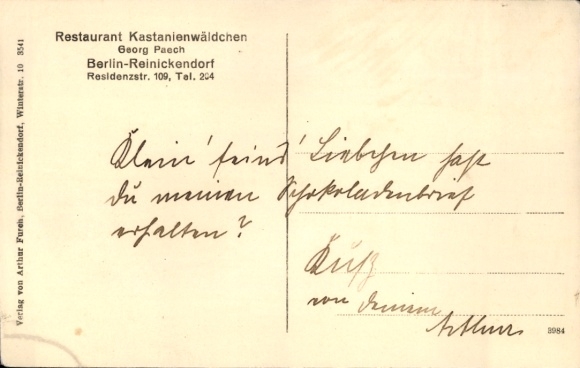 Restaurant Kastanienwäldchen
Georg Paech
Berlin-Reinickendorf
Residenzstr. 109, Tel. 204
Verlag von Arthur Fureh, Berlin-Reinickendorf, Winterstr. 10 3541
Klein' feins' Liebchen hast
du meinen Schokoladenbrief
erhalten?
Kuß
von deinem
Arthur
3984